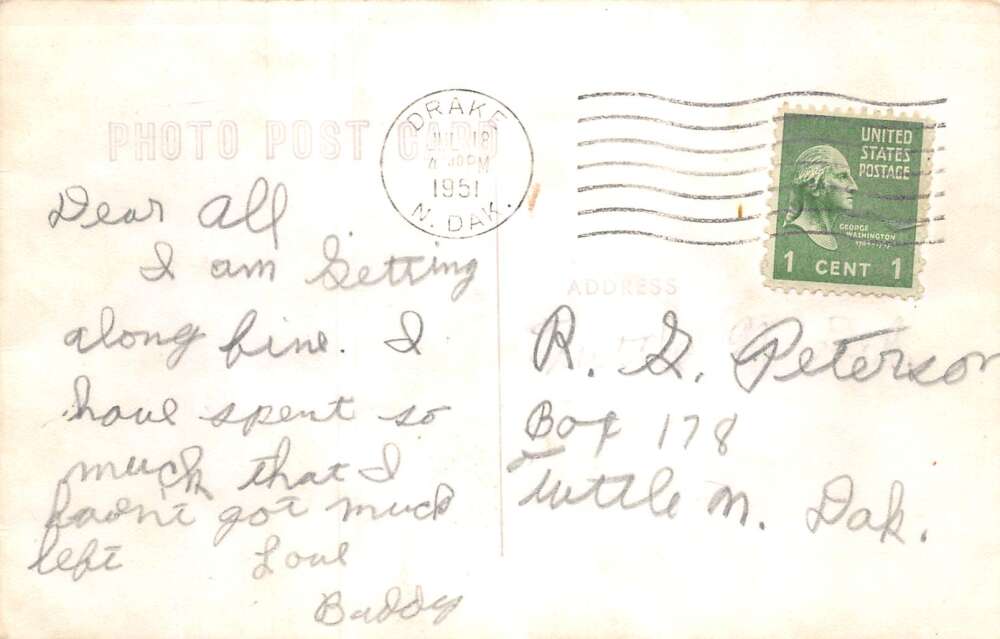 PHOTO POST CARD
DRAKE
18
PM
1951
N. DAK.
UNITED
STATES
POSTAGE
GEORGE
WASHINGTON
1 CENT 1
Dear All
I am Getting
along fine. I
have spent so
much that I
havn't got much
left Love
Buddy
ADDRESS
R. G. Peterson
Box 178
Tuttle N. Dak.